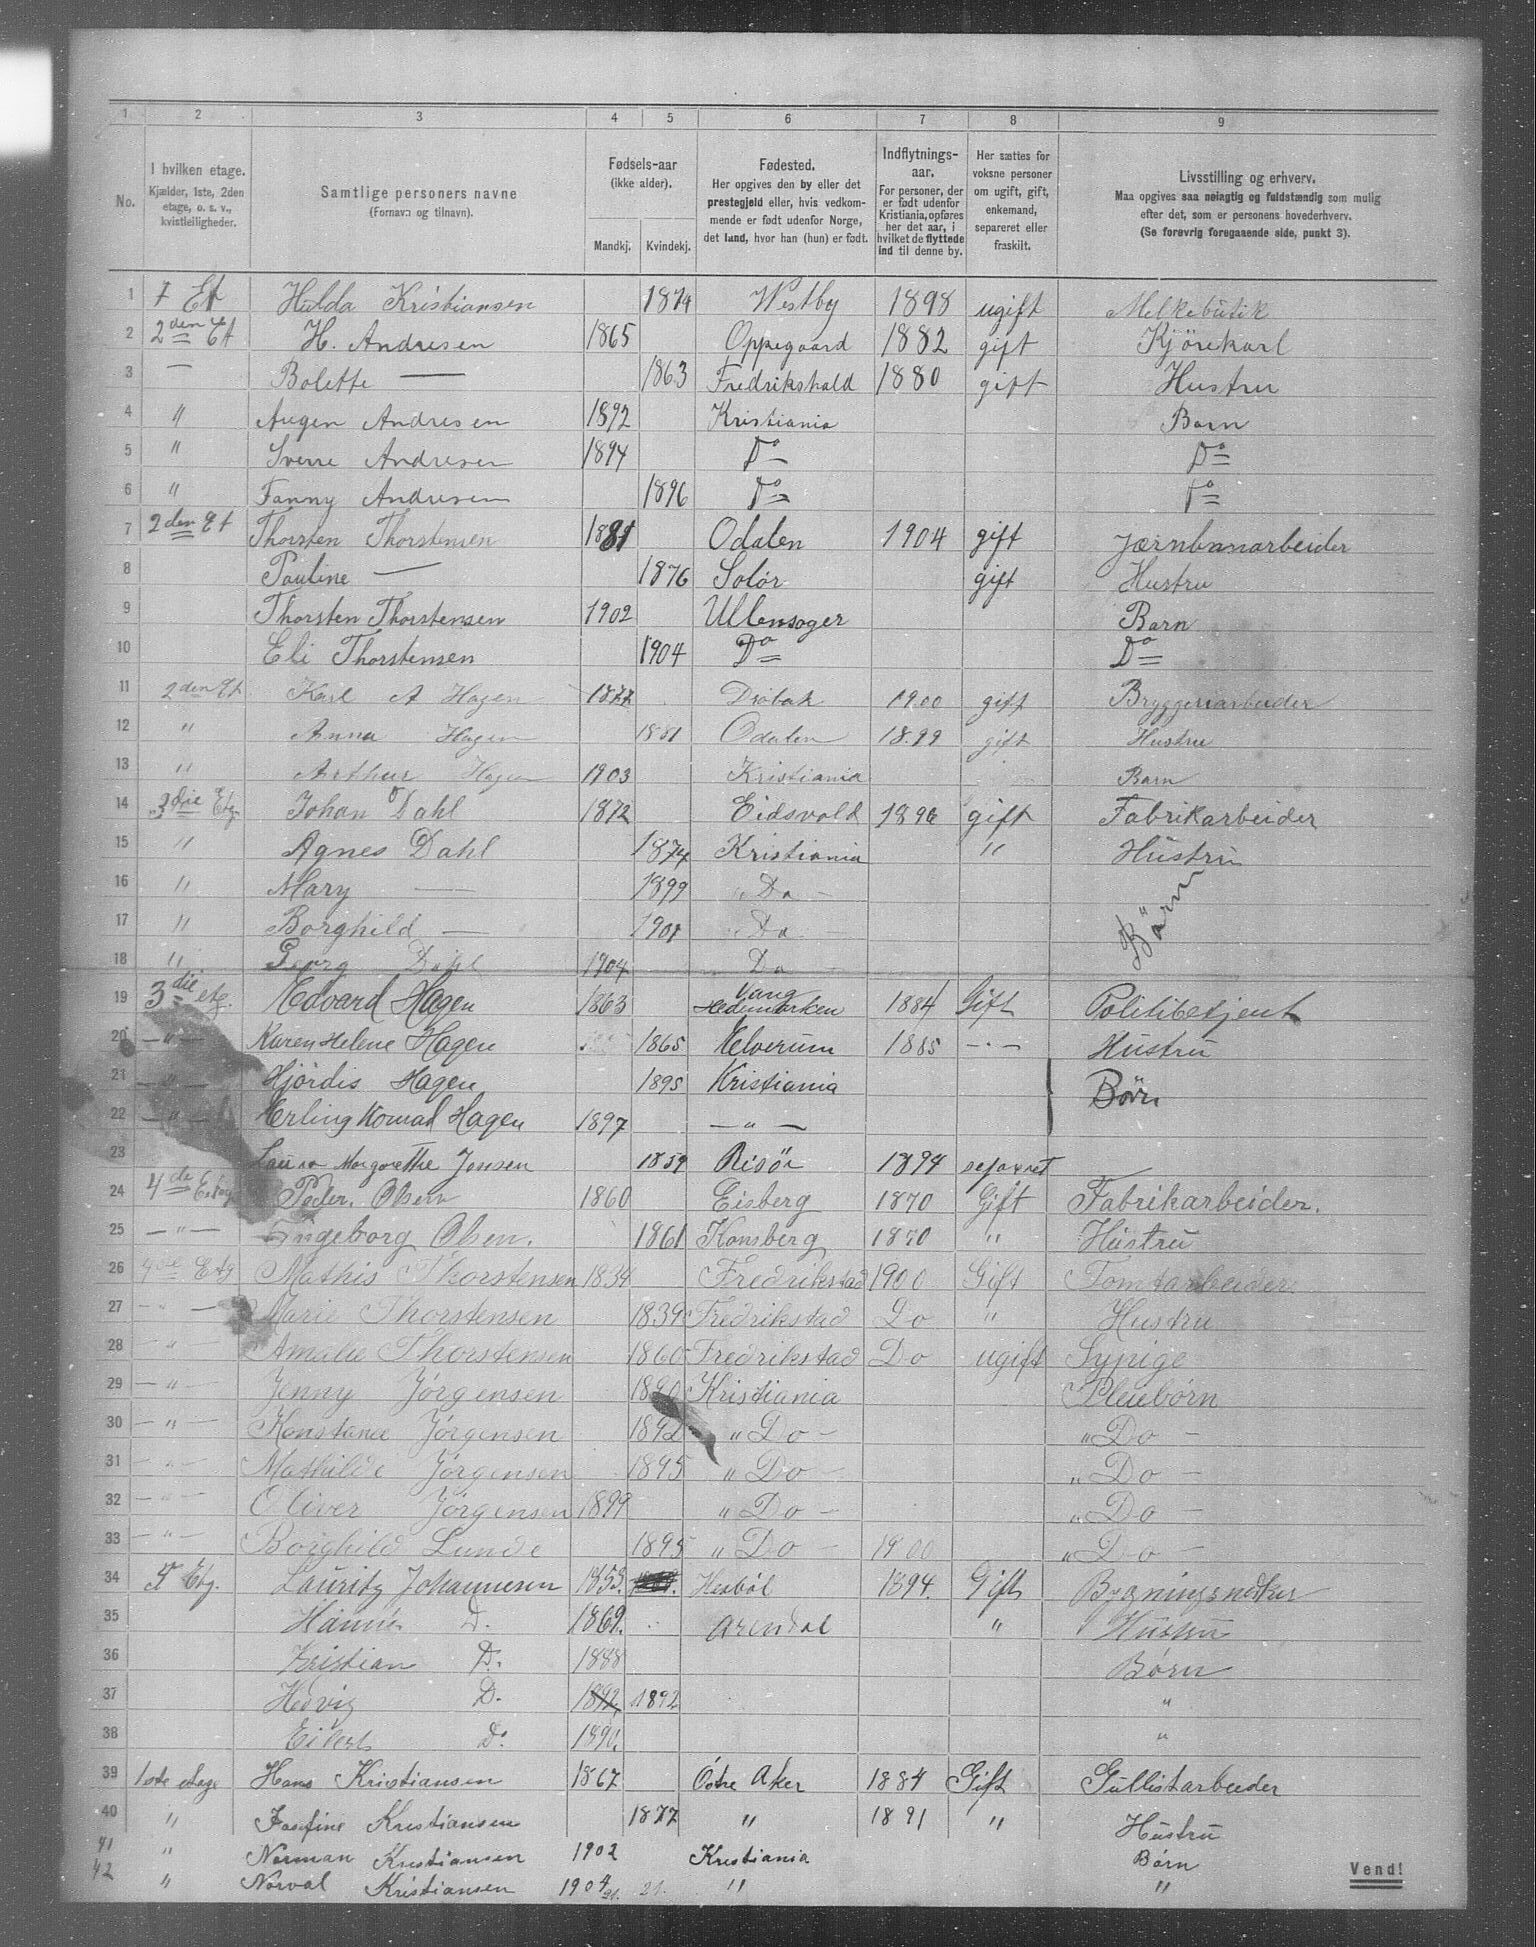 1 2 3 4 5 6 7 8 9
No.
I hvilken etage.
Kjælder, 1ste, 2den
etage, o. s. v.,
kvistleiligheder.
Samtlige personers navne
(Fornavn og tilnavn).
Fødsels-aar
(ikke alder).
Mandkj. Kvindekj.
Fødested.
Her opgives den by eller det
prestegjeld eller, hvis vedkom-
mende er født udenfor Norge,
det land, hvor han (hun) er født.
Indflytnings-
aar.
For personer, der
er født udenfor
Kristiania, opføres
her det aar, i
hvilket de flyttede
ind til denne by.
Her sættes for
voksne personer
om ugift, gift,
enkemand,
separeret eller
fraskilt.
Livsstilling og erhverv.
Maa opgives saa nøiagtig og fuldstændig som mulig
efter det, som er personens hovederhverv.
(Se forøvrig foregaaende side, punkt 3).
1 1 Et Hulda Kristiansen 1874 Westby 1898 ugift Melkebutik
2 2den Et H. Andresen 1865 Oppegaard 1882 gift Kjørekarl
3 — Bolette — 1863 Fredrikshald 1880 gift Hustru
4 " Augen Andresen 1892 Kristiania Barn
5 " Sverre Andresen 1894 Do Do
6 " Fanny Andresen 1896 Do Do
7 2den Et Thorsten Thorstensen 1881 Odalen 1904 gift Jærnbanarbeider
8 Pauline — 1876 Solør gift Hustru
9 Thorsten Thorstensen 1902 Ullensoger Barn
10 Eli Thorstensen 1904 Do Do
11 2den Et Karl A Hagen 1877 Drøbak 1900 gift Bryggeriarbeider
12 " Anna Hagen 1881 Odalen 1899 gift Hustru
13 " Arthur Hagen 1903 Kristiania Barn
14 3die Etg Johan Dahl 1872 Eidsvold 1896 gift Fabrikarbeider
15 " Agnes Dahl 1874 Kristiania " Hustru
16 " Mary — 1899 " Do —
17 " Borghild — 1901 " Do — Børn
18 " Georg Dahl 1904 Do
19 3die etg. Edvard Hagen 1863 Vang Hedemarken 1884 Gift Politibetjent
20 — " — Karen Helene Hagen 1865 Elverum 1885 — " — Hustru
21 — " — Hjördis Hagen 1895 Kristiania Børn
22 — " — Erling Konrad Hagen 1897 — " —
23 Laura Margrethe Jensen 1859 Risör 1894 separet
24 4da Etag Peder. Olsen 1860 Eisberg 1870 Gift Fabrikarbeider.
25 — " — Ingeborg Olsen. 1861 Konsberg 1870 " Hustru
26 4de Etg Mathis Thorstensen 1834 Fredrikstad 1900 Gift Tomtarbeider
27 — " — Marie Thorstensen 1839 Fredrikstad Do " Hustru
28 — " — Amalie Thorstensen 1860 Fredrikstad Do ugift Sypige
29 — " — Jenny Jørgensen 1890 Kristiania Pleiebörn
30 — " — Konstance Jørgensen 1892 " Do — " Do —
31 — " — Mathilde Jørgensen 1895 " Do — " Do —
32 — " — Oliver Jørgensen 1899 " Do — " Do —
33 — " — Borghild Lunde 1895 " Do — 1900 " Do —
34 5 Etg. Lauritz Johannesen 1853. 1894. Gift
35 Hanne D. 1869. Arendal " Hustru
36 Kristian D. 1888 Børn
37 Hedvig D. 1892 1892 "
38 Eilert Do "
39 1ste etage Hans Kristiansen 1867 Östre Aker 1884 Gift Gullistarbeider
40 " Josefine Kristiansen 1877 " 1891 " Hustru
41 " Norman Kristiansen 1902 Kristiania Børn
42 " Norval Kristiansen 1904 " "
21. 21.
Vend!